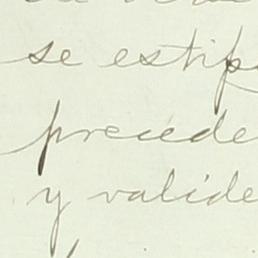 se estip
precede
y valide